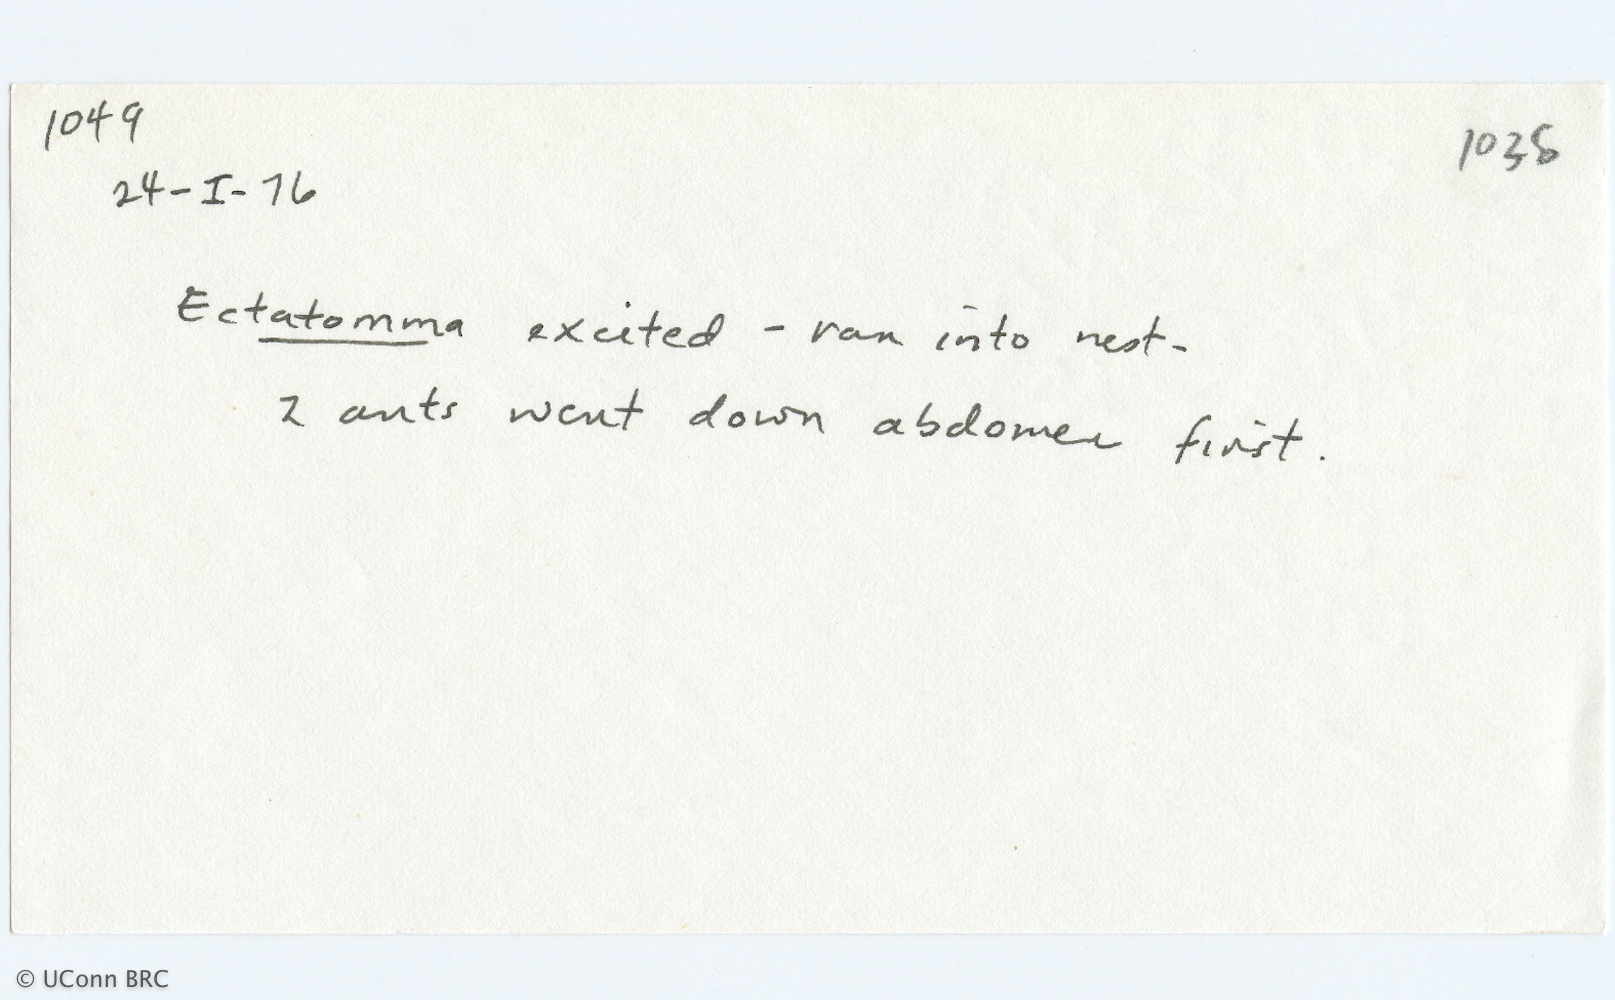 1049
1038
24-I-76
Ectatomma excited - ran into nest-
2 ants went down abdomen first.
© UConn BRC